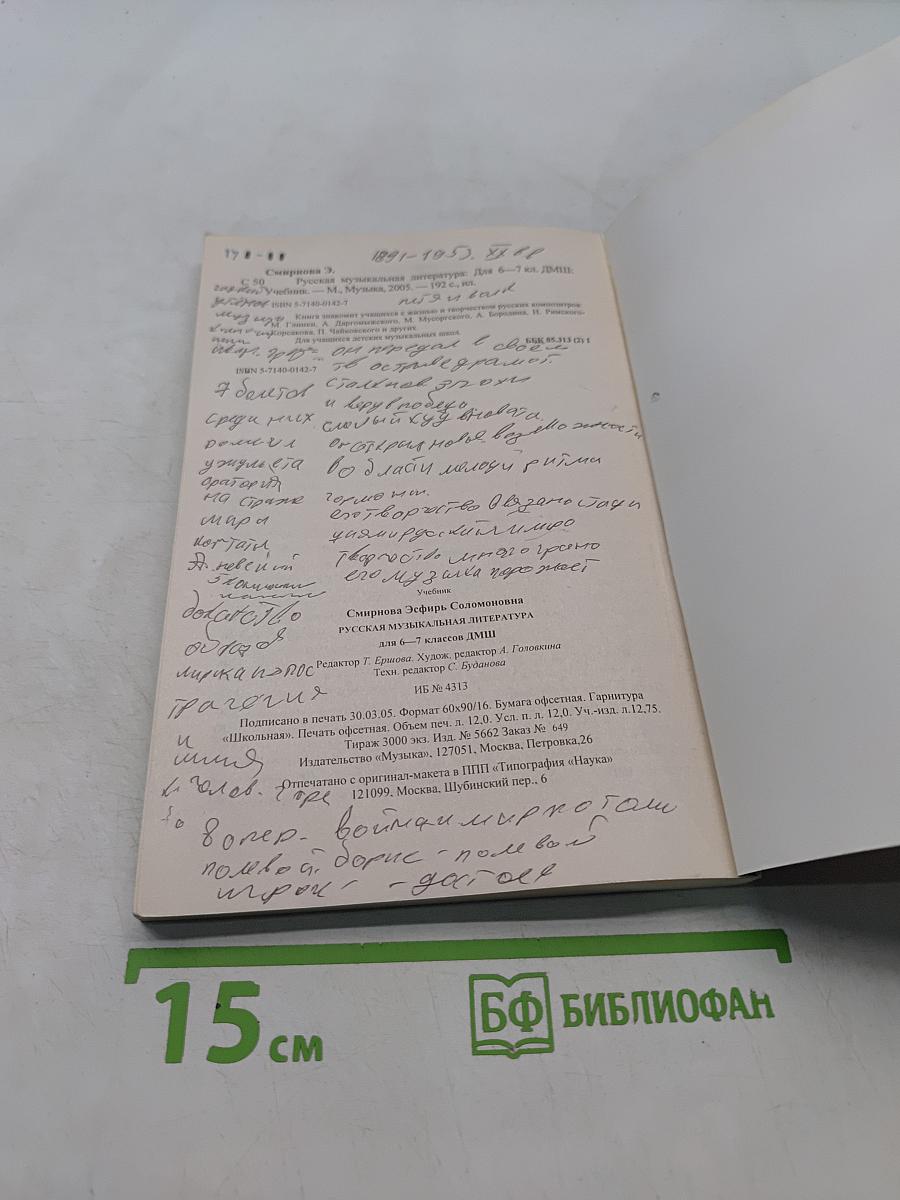 1891-1953. XX вв
Смирнова Э.
С 50 Русская музыкальная литература: Для 6—7 кл. ДМШ:
Учебник. — М., Музыка, 2005. — 192 с., ил.
ISBN 5-7140-0142-7
Книга знакомит учащихся с жизнью и творчеством русских композиторов:
М. Глинки, А. Даргомыжского, М. Мусоргского, А. Бородина, Н. Римского-
Корсакова, П. Чайковского и других.
Для учащихся детских музыкальных школ.
ББК 85.313 (2) 1
он передал в своем
ISBN 5-7140-0142-7
тв острые драмат.
7 балетов
среди них
ромиул
ужульета
оратория
на страже
мира
кантаты
А. невский
сталкнов эпохи
и веру в победу
смелый худ новата
он открыл новые возможности
в области мелоди ритма
гормони.
его творчество
творчество многогранно
его музыка
Учебник
Смирнова Эсфирь Соломоновна
РУССКАЯ МУЗЫКАЛЬНАЯ ЛИТЕРАТУРА
для 6—7 классов ДМШ
Редактор Т. Ершова. Худож. редактор А. Головкина
Техн. редактор С. Буданова
ИБ № 4313
трагегия
и
Подписано в печать 30.03.05. Формат 60х90/16. Бумага офсетная. Гарнитура
«Школьная». Печать офсетная. Объем печ. л. 12,0. Усл. п. л. 12,0. Уч.-изд. л.12,75.
Тираж 3000 экз. Изд. № 5662 Заказ № 649
Издательство «Музыка», 127051, Москва, Петровка,26
Отпечатано с оригинал-макета в ППП «Типография «Наука»
121099, Москва, Шубинский пер., 6
8 опер - война и мир
полевой борис - полевой
игрок - - достоев
15 см
БФ БИБЛИОФАН